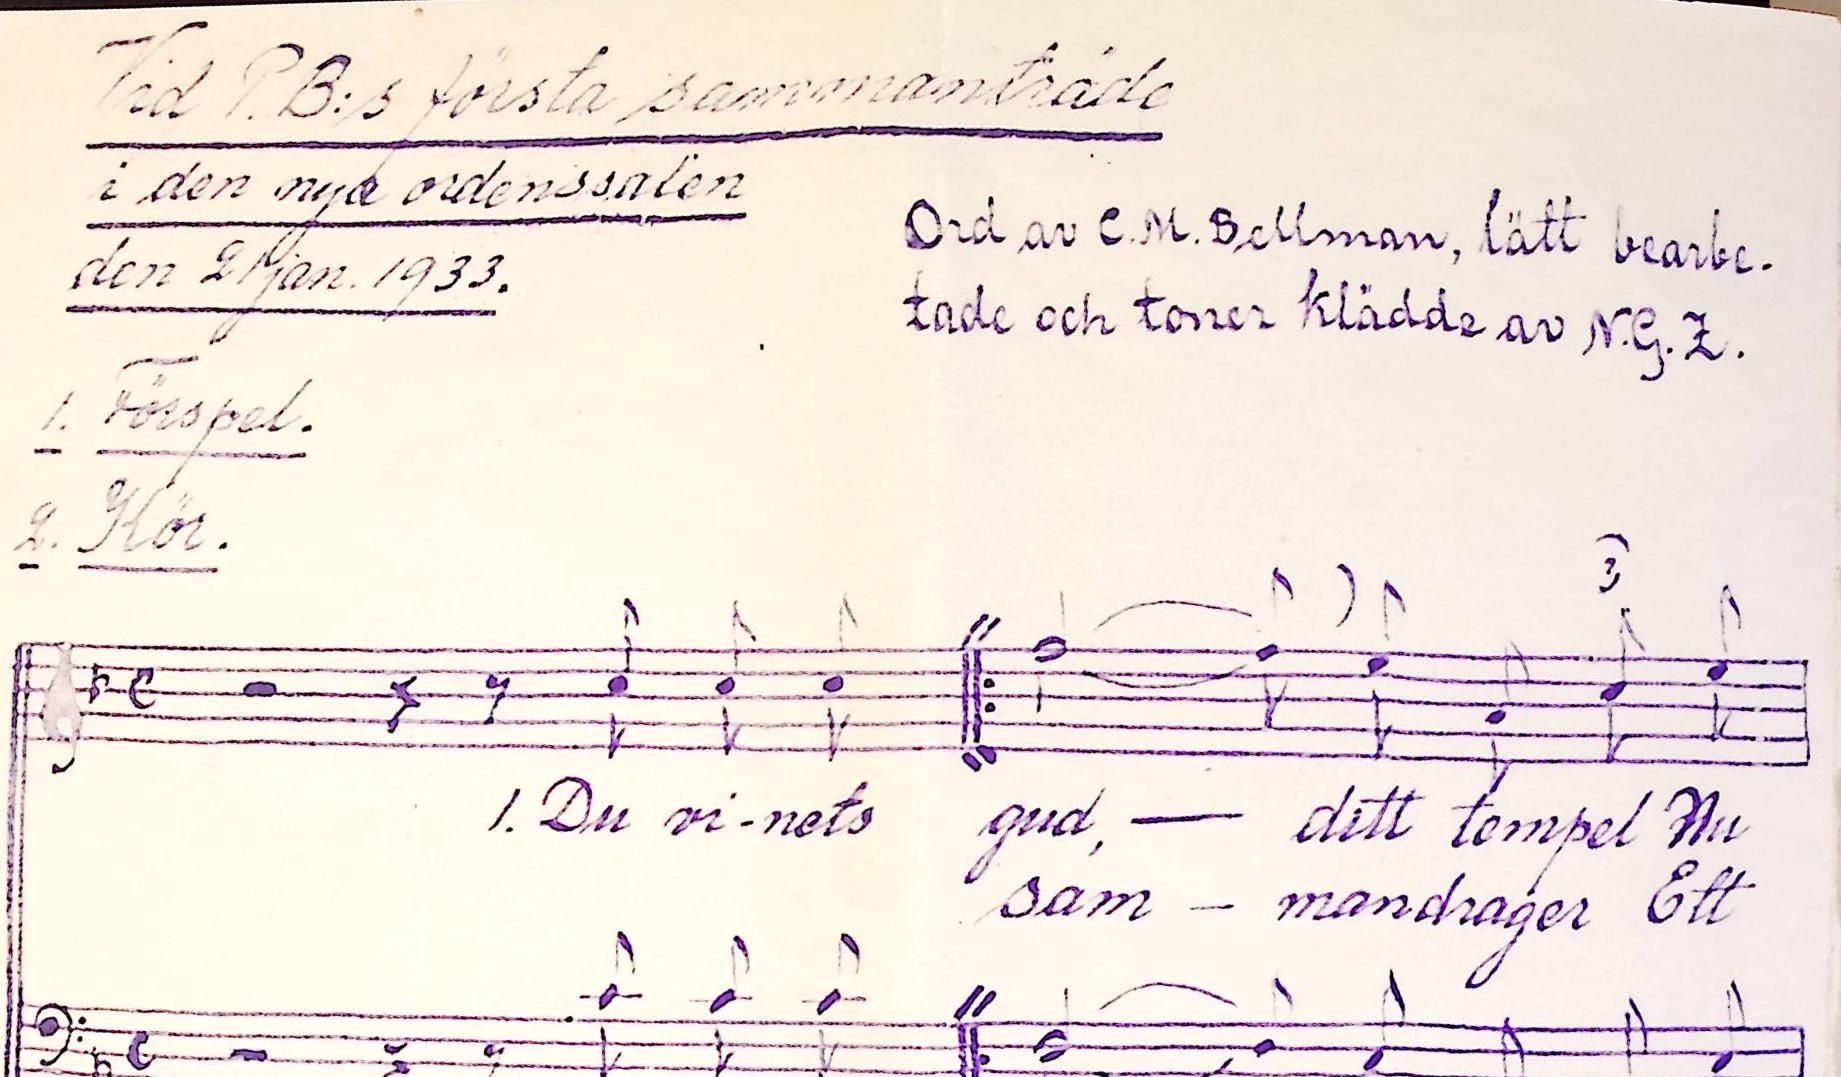 Vid P.B:s första sammanträde
i den nya ordenssalen
den 21 jan. 1933.
Ord av C.M. Bellman, lätt bearbe-
tade och toner klädde av N.G.Z.
1. Förspel.
2. Kör.
3
1. Du vi-nets gud, — ditt tempel Nu
sam – mandrager Ett